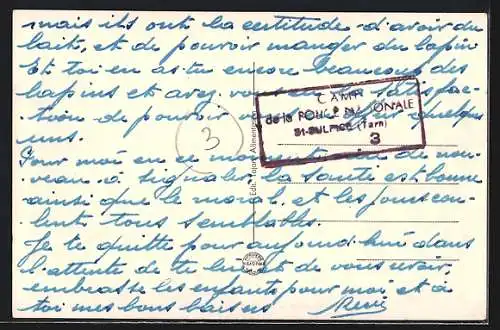 mais ils ont la certitude d'avoir du
lait, et de pouvoir manger du lapin
Et toi en as tu encore beaucoup des
lapins et avez vous eu la satisfac-
tion de pouvoir en quelques
uns.
Pour moi en ce moment rien de nou-
veau à signaler, la santé est bonne
ainsi que le moral, et les jours cou-
lent tous semblables.
Je te quitte pour aujourd'hui dans
l'attente de te lire et de vous revoir,
embrasse les enfants pour moi et à
toi mes bons baisers
René
3
CAMP
de la POLICE NATIONALE
St-SULPICE (Tarn)
3
Edit. Tajan, Alimentation